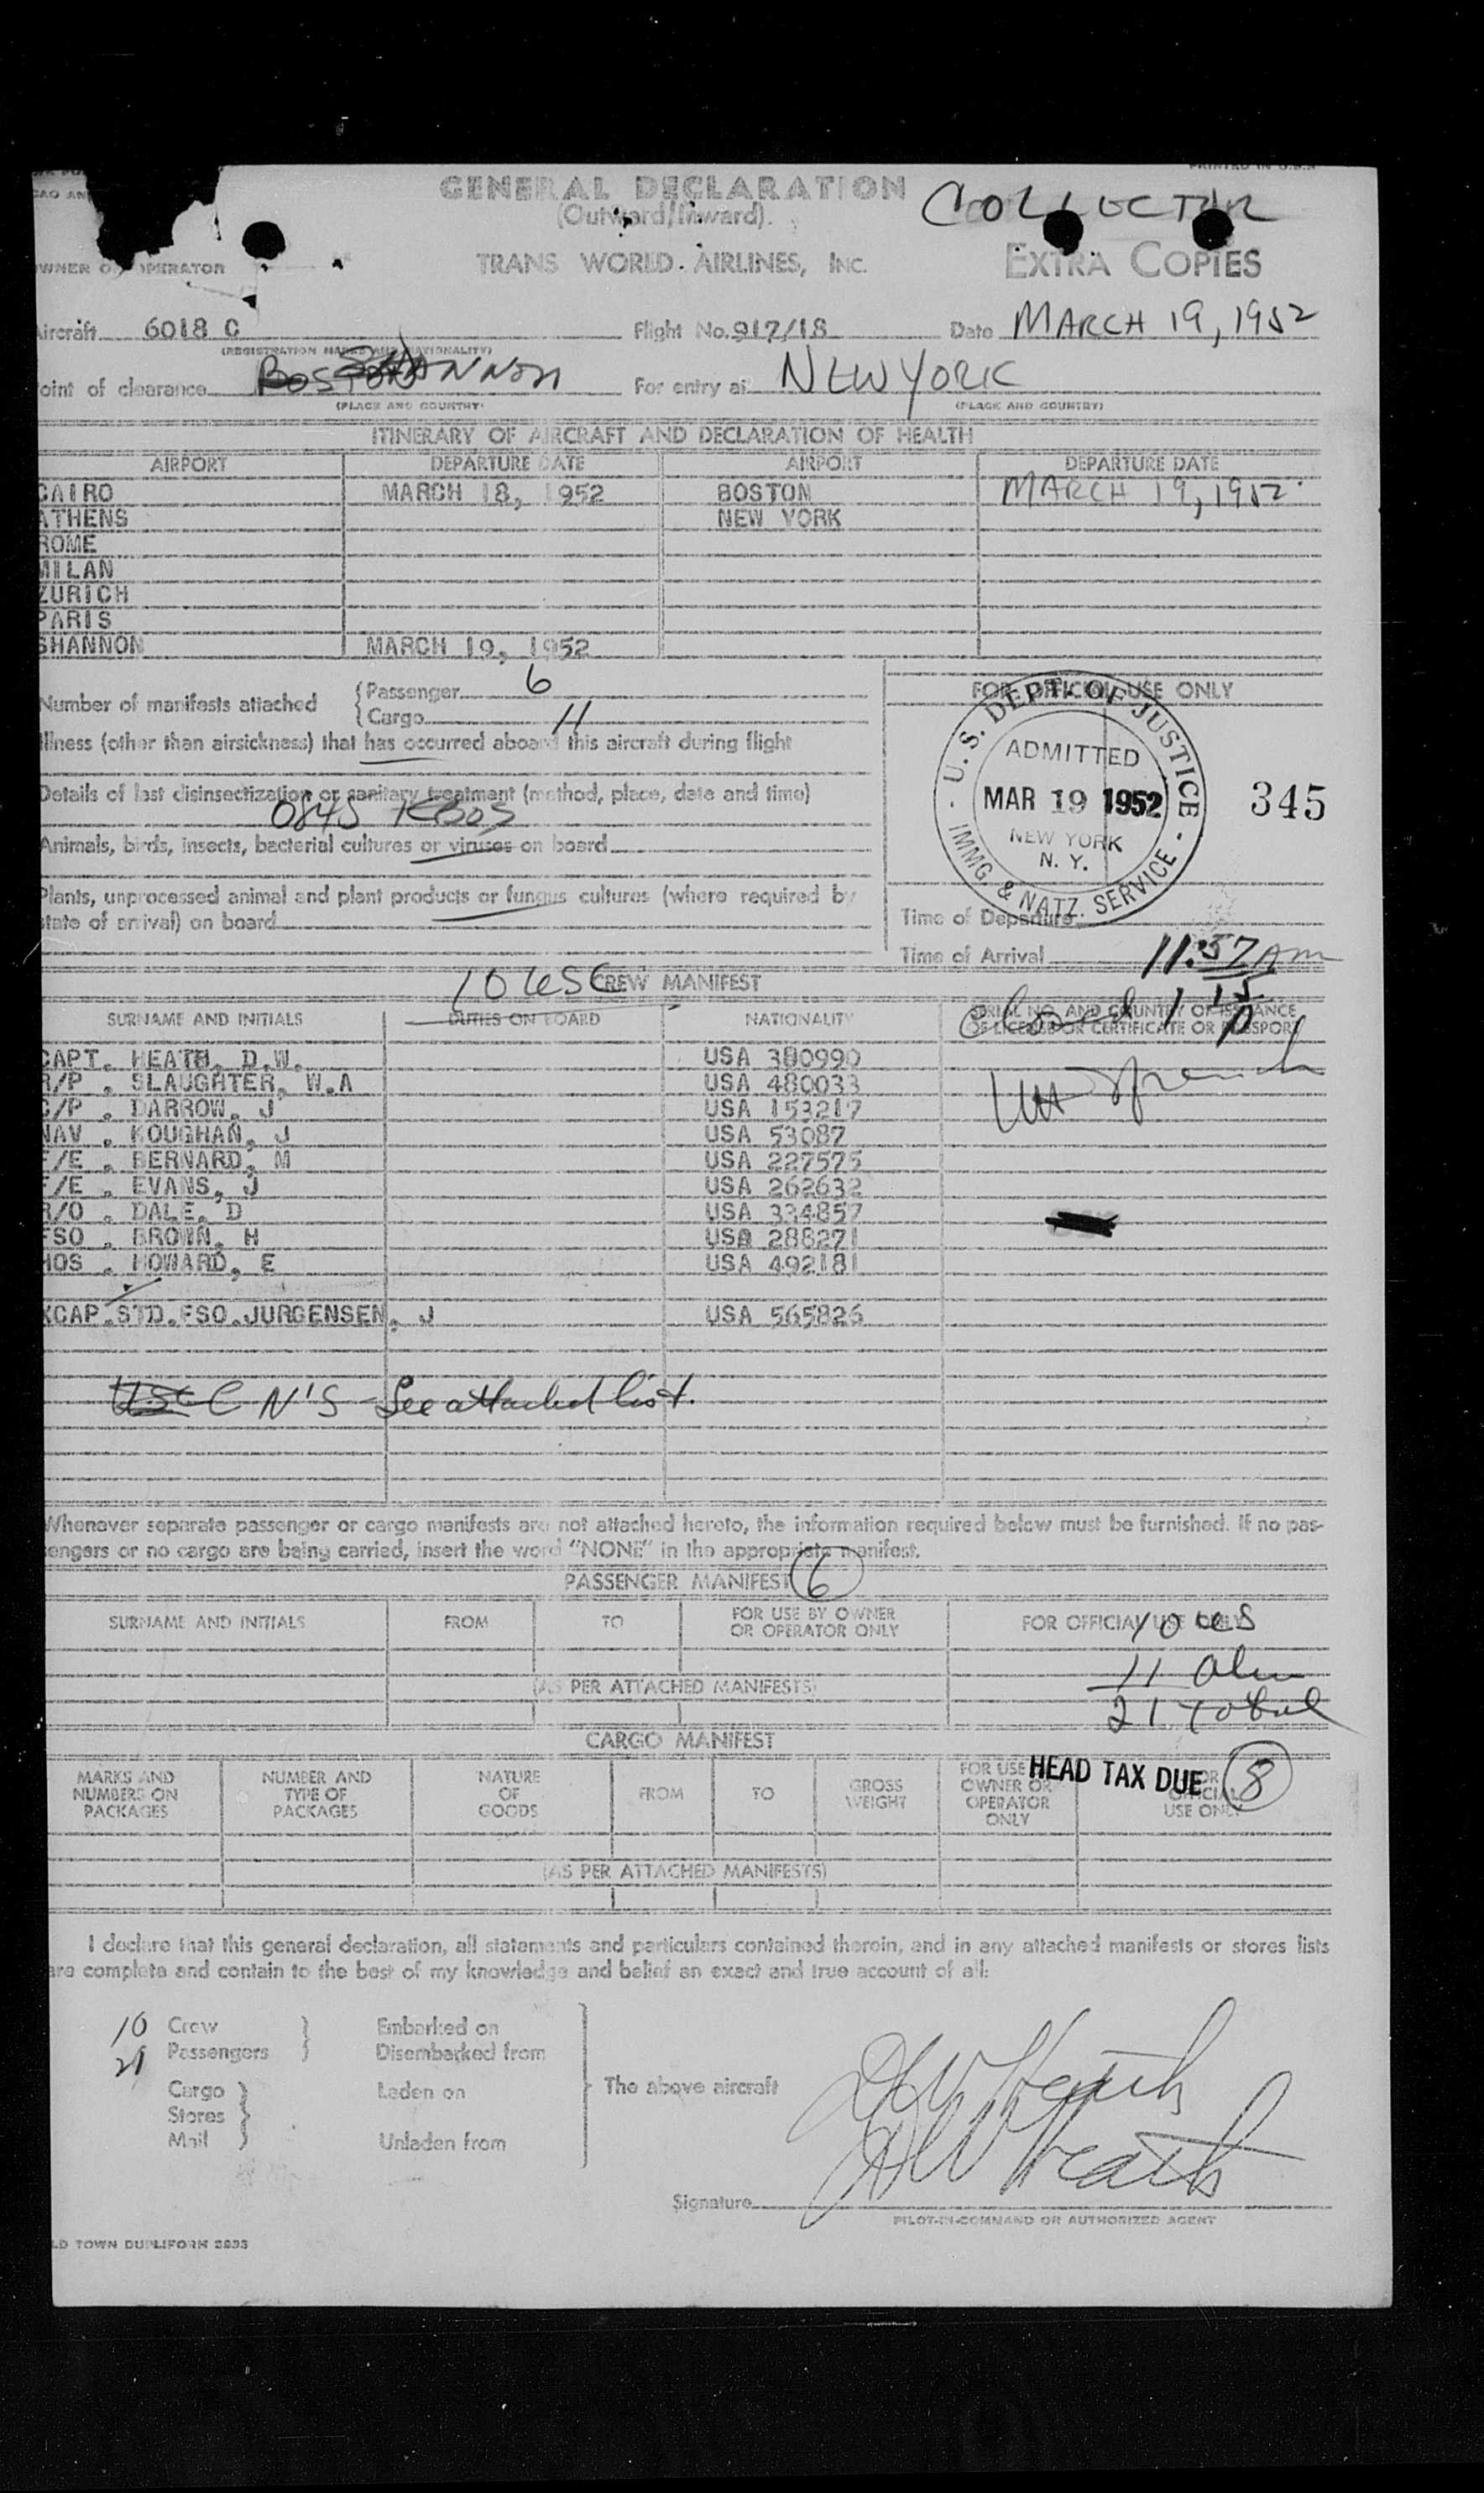 PRINTED IN U.S.A
GENERAL DECLARATION
(Outward/Inward)
COLLECTOR
OWNER OR OPERATOR
TRANS WORLD AIRLINES, INC.
EXTRA COPIES
Aircraft 6018 C Flight No. 917/18 Date MARCH 19, 1952
(REGISTRATION MARKS AND NATIONALITY)
oint of clearance BOSTON SHANNON For entry at NEW YORK
(PLACE AND COUNTRY) (PLACE AND COUNTRY)
ITINERARY OF AIRCRAFT AND DECLARATION OF HEALTH
AIRPORT DEPARTURE DATE AIRPORT DEPARTURE DATE
CAIRO MARCH 18, 1952 BOSTON MARCH 19, 1952
ATHENS NEW YORK
ROME
MILAN
ZURICH
PARIS
SHANNON MARCH 19, 1952
Number of manifests attached { Passenger 6
Cargo 11
FOR OFFICIAL USE ONLY
Illness (other than airsickness) that has occurred aboard this aircraft during flight
Details of last disinsectization or sanitary treatment (method, place, date and time)
0845 KBOS
Animals, birds, insects, bacterial cultures or viruses on board
Plants, unprocessed animal and plant products or fungus cultures (where required by
state of arrival) on board
U.S. DEPT. OF JUSTICE
ADMITTED
MAR 19 1952
NEW YORK
N. Y.
IMMG & NATZ. SERVICE
345
Time of Departure
Time of Arrival 11:57 AM
10 USC CREW MANIFEST
Closed 1 15 P
SURNAME AND INITIALS DUTIES ON BOARD NATIONALITY SERIAL NO. AND COUNTRY OF ISSUANCE
OF LICENSE OR CERTIFICATE OR PASSPORT
CAPT. HEATH, D.W. USA 380990
R/P . SLAUGHTER, W.A USA 480033
C/P . DARROW, J USA 153217
NAV . KOUGHAN, J USA 53087
F/E . BERNARD, M USA 227575
F/E . EVANS, J USA 262632
R/O . DALE, D USA 334857
FSO . BROWN, H USA 288271
HOS . HOWARD, E USA 492181
XCAP.STD.FSO.JURGENSEN, J USA 565826
C N'S - See attached list.
Whenever separate passenger or cargo manifests are not attached hereto, the information required below must be furnished. If no pas-
sengers or no cargo are being carried, insert the word "NONE" in the appropriate manifest.
PASSENGER MANIFEST 6
SURNAME AND INITIALS FROM TO FOR USE BY OWNER
OR OPERATOR ONLY FOR OFFICIAL USE ONLY
10 US
11 Alien
(AS PER ATTACHED MANIFESTS)
21 total
CARGO MANIFEST
MARKS AND
NUMBERS ON
PACKAGES
NUMBER AND
TYPE OF
PACKAGES
NATURE
OF
GOODS
FROM
TO
GROSS
WEIGHT
FOR USE
OWNER OR
OPERATOR
ONLY
FOR
OFFICIAL
USE ONLY
HEAD TAX DUE 8
(AS PER ATTACHED MANIFESTS)
I declare that this general declaration, all statements and particulars contained therein, and in any attached manifests or stores lists
are complete and contain to the best of my knowledge and belief an exact and true account of all:
10 Crew } Embarked on
21 Passengers } Disembarked from
Cargo } Laden on
Stores
Mail Unladen from
The above aircraft
DW Heath
DW Heath
Signature
PILOT-IN-COMMAND OR AUTHORIZED AGENT
LD TOWN DUPLIFORM